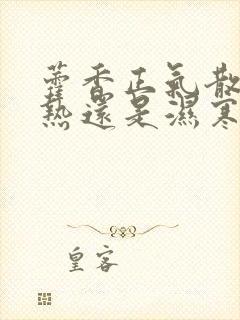 藿香正氣散
熱還是濕寒
皇客